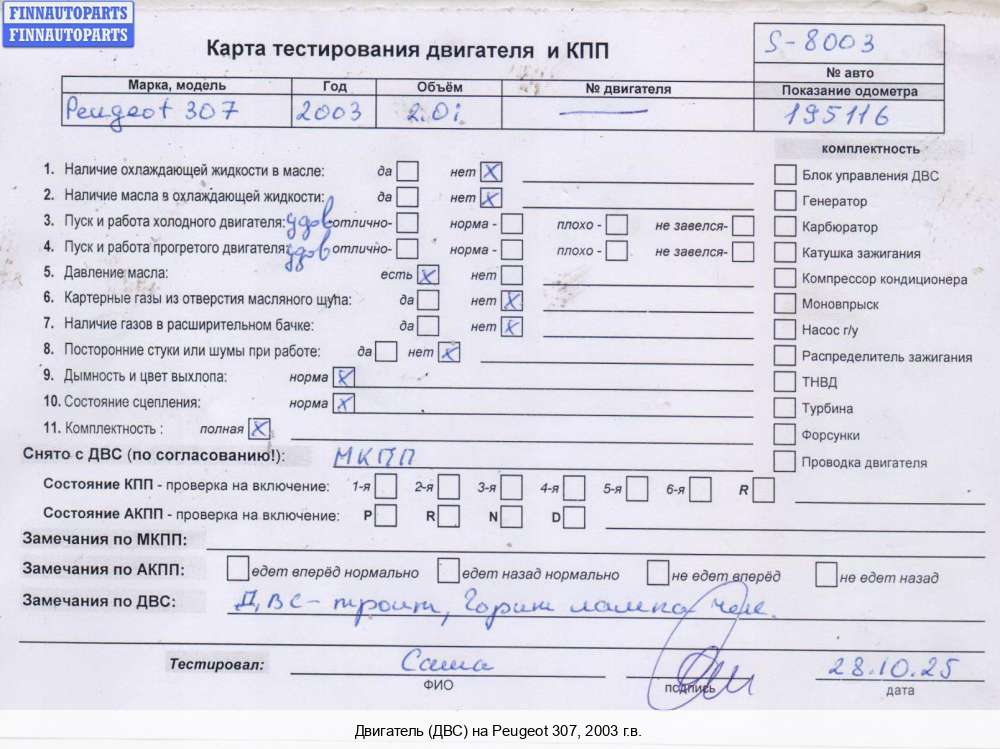 FINNAUTOPARTS
FINNAUTOPARTS
Карта тестирования двигателя и КПП
S-8003
№ авто
Марка, модель Год Объём № двигателя Показание одометра
Peugeot 307 2003 2.0i — 195116
комплектность
1. Наличие охлаждающей жидкости в масле: да нет X
Блок управления ДВС
2. Наличие масла в охлаждающей жидкости: да нет X
Генератор
3. Пуск и работа холодного двигателя: удов отлично- норма - плохо - не завелся-
Карбюратор
4. Пуск и работа прогретого двигателя: удов отлично- норма - плохо - не завелся-
Катушка зажигания
5. Давление масла: есть X нет
Компрессор кондиционера
6. Картерные газы из отверстия масляного щупа: да нет X
Моновпрыск
7. Наличие газов в расширительном бачке: да нет X
Насос г/у
8. Посторонние стуки или шумы при работе: да нет X
Распределитель зажигания
9. Дымность и цвет выхлопа: норма X
ТНВД
10. Состояние сцепления: норма X
Турбина
11. Комплектность : полная X
Форсунки
Снято с ДВС (по согласованию!): МКПП
Проводка двигателя
Состояние КПП - проверка на включение: 1-я 2-я 3-я 4-я 5-я 6-я R
Состояние АКПП - проверка на включение: P R N D
Замечания по МКПП:
Замечания по АКПП: едет вперёд нормально едет назад нормально не едет вперёд не едет назад
Замечания по ДВС: ДВС - троит, Горит лампа чек.
Тестировал: Саша 28.10.25
ФИО подпись дата
Двигатель (ДВС) на Peugeot 307, 2003 г.в.